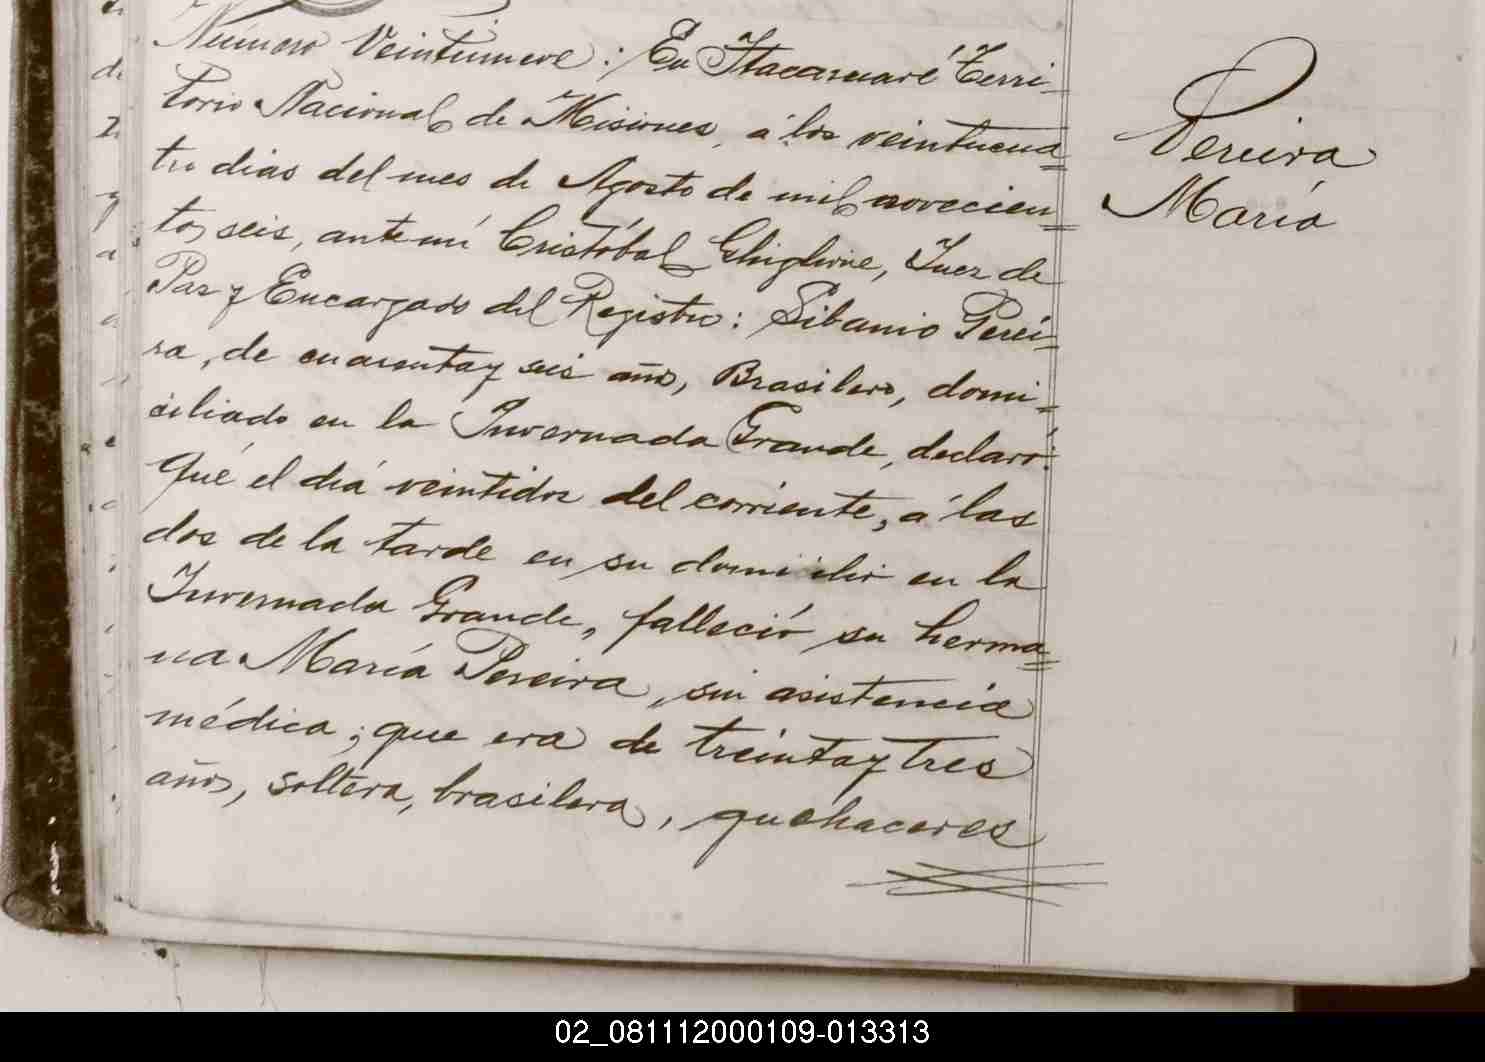 Número Veintinueve: En Itacaruaré Terri-
torio Nacional de Misiones, á los veinticua=
tro dias del mes de Agosto de mil novecien=
tos seis, ante mí Cristóbal Ghiglione, Juez de
Paz y Encargado del Registro: Sibanio Perei-
ra, de cuarenta y seis años, Brasilero, domi-
ciliado en la Invernada Grande, declaró:
Qué el diá veintidos del corriente, á las
dos de la tarde en su domicilio en la
Invernada Grande, falleció su herma=
na María Pereira, sin asistencia
médica; que era de treinta y tres
años, soltera, brasilera, quehaceres
Pereira
María
02_081112000109-013313